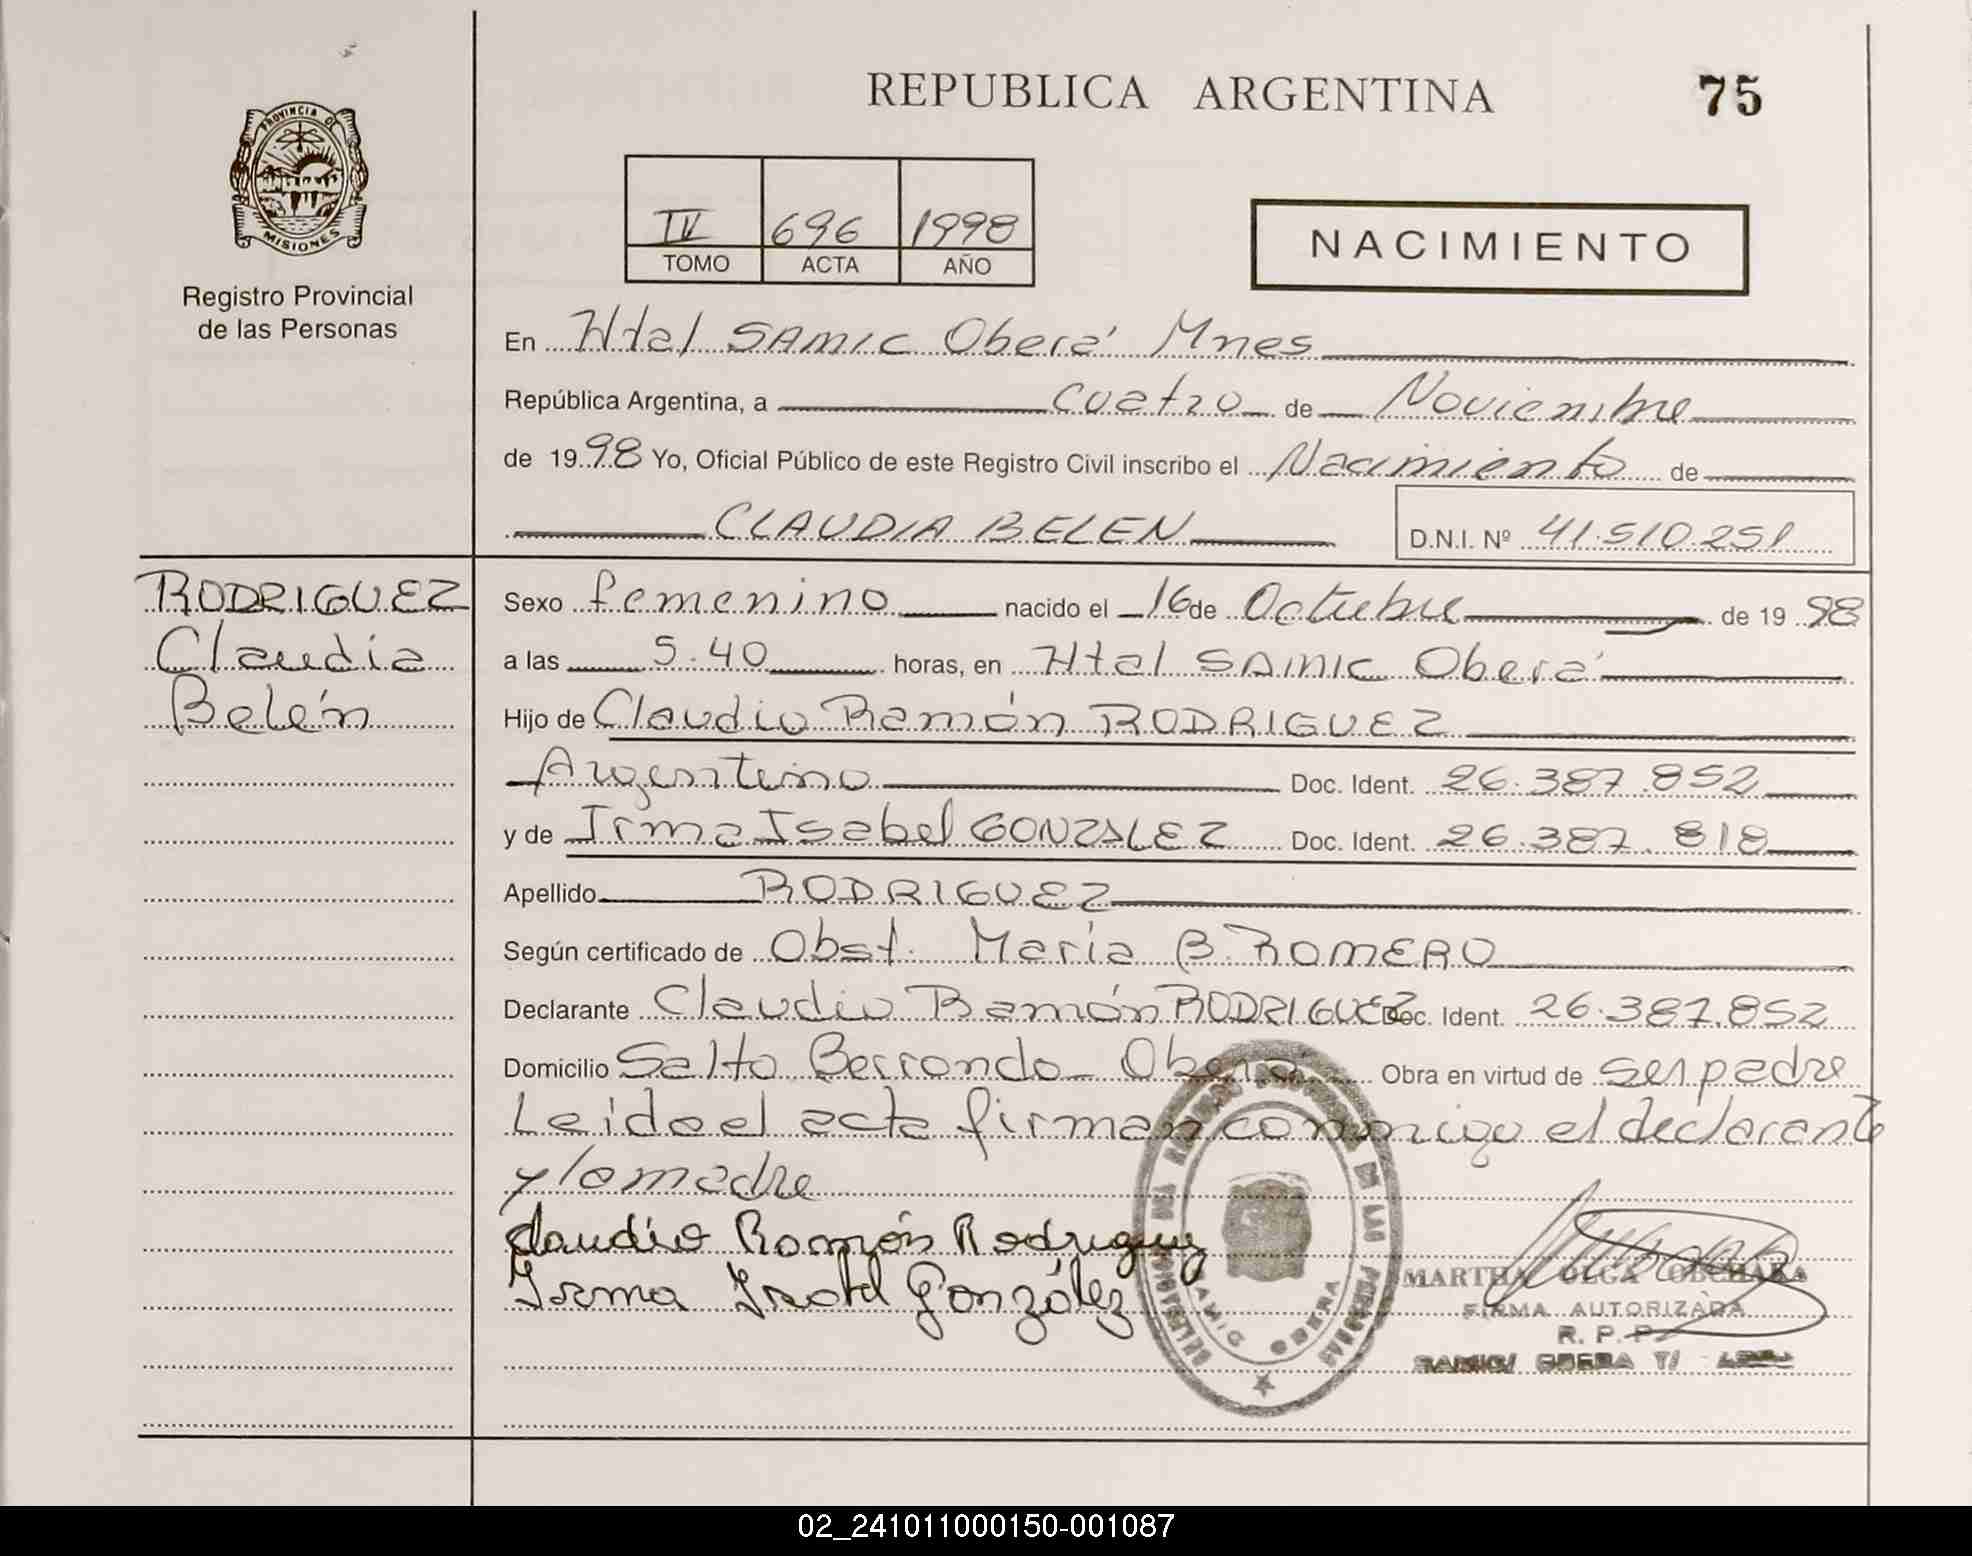 REPUBLICA ARGENTINA
75
PROVINCIA DE
MISIONES
Registro Provincial
de las Personas
IV 696 1998
TOMO ACTA AÑO
NACIMIENTO
En Htal SAMIC Oberá Mnes
República Argentina, a cuatro de Noviembre
de 1998 Yo, Oficial Público de este Registro Civil inscribo el Nacimiento de
CLAUDIA BELEN D.N.I. Nº 41.510.251
RODRIGUEZ
Claudia
Belén
Sexo femenino nacido el 16 de Octubre de 1998
a las 5.40 horas, en Htal SAMIC Oberá
Hijo de Claudio Ramón RODRIGUEZ
Argentino Doc. Ident. 26.387.852
y de Irma Isabel GONZALEZ Doc. Ident. 26.387.818
Apellido RODRIGUEZ
Según certificado de Obst. María B. ROMERO
Declarante Claudio Ramón RODRIGUEZ Doc. Ident. 26.387.852
Domicilio Salto Berrondo - Oberá Obra en virtud de ser padre
Leida el acta firman conmigo el declarante
y la madre
Claudio Ramón Rodriguez
Irma Isabel González
DE LAS PERSONAS
SAMIC OBERA
MARTHA OLGA
FIRMA AUTORIZADA
R. P. P.
SAMIC/ OBERA
02_241011000150-001087